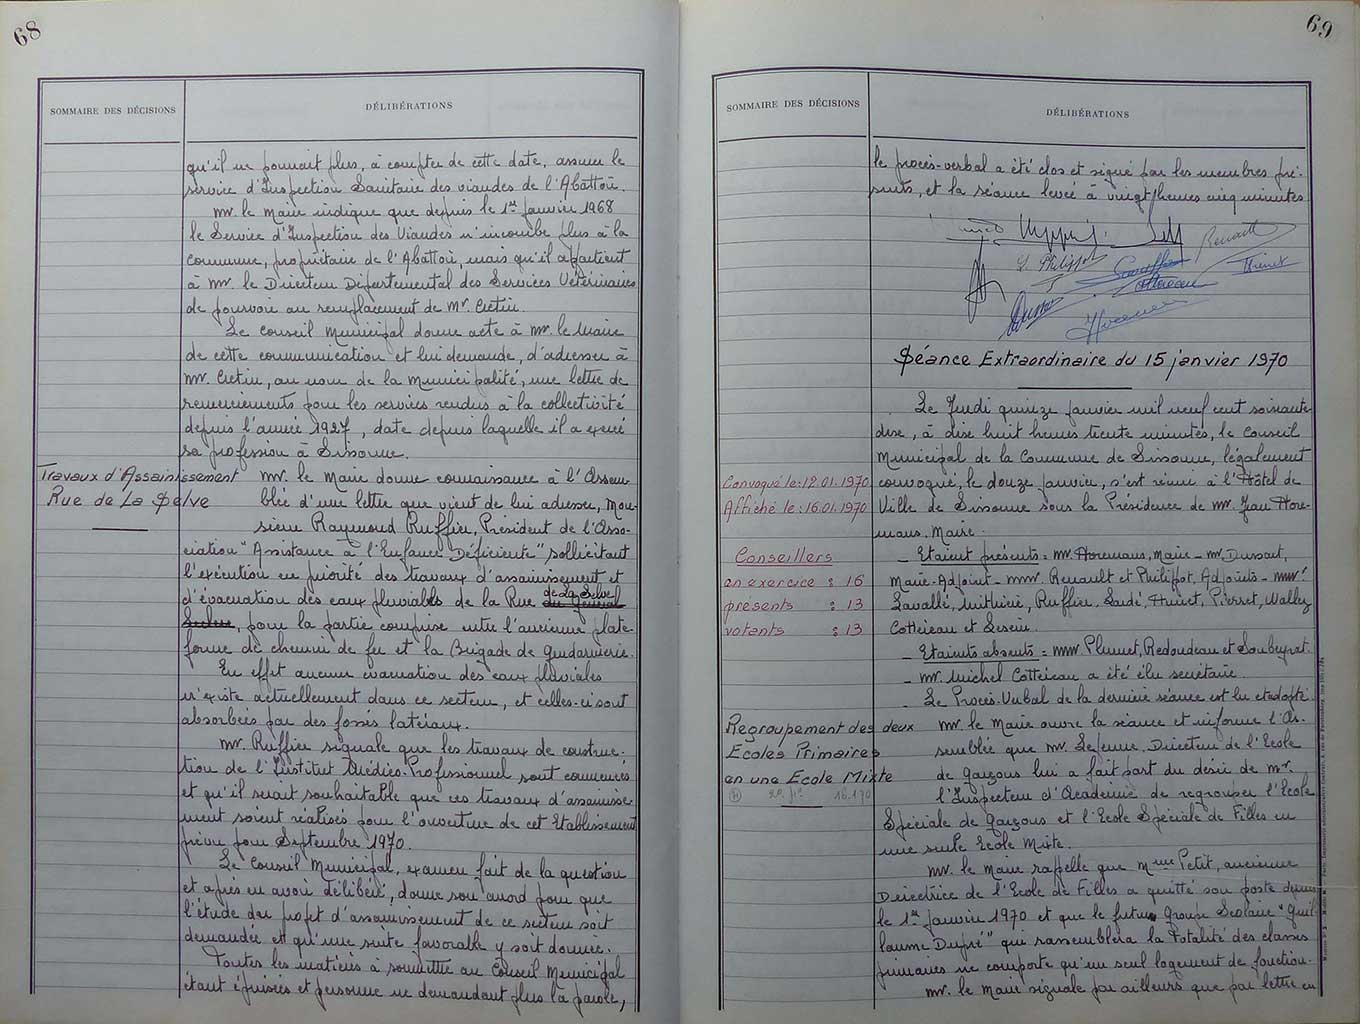 68
SOMMAIRE DES DÉCISIONS
DÉLIBÉRATIONS
qu'il ne pouvait plus, à compter de cette date, assurer le
service d'Inspection Sanitaire des viandes de l'Abattoir.
Mr. le Maire indique que depuis le 1er Janvier 1968
le Service d'Inspection des Viandes n'incombe plus à la
Commune, propriétaire de l'Abattoir, mais qu'il appartient
à Mr. le Directeur Départemental des Services Vétérinaires
de pourvoir au remplacement de Mr. Cretin.
Le Conseil Municipal donne acte à Mr. le Maire
de cette communication et lui demande, d'adresser à
Mr. Cretin, au nom de la Municipalité, une lettre de
remerciements pour les services rendus à la collectivité
depuis l'année 1927, date depuis laquelle il a exercé
sa profession à Sissonne.
Travaux d'Assainissement
Rue de La Selve
Mr. le Maire donne connaissance à l'Assem
blée d'une lettre que vient de lui adresser, Mon-
sieur Raymond Ruffier, Président de l'Asso-
ciation "Assistance à l'Enfance Déficiente" sollicitant
l'exécution en priorité des travaux d'assainissement et
d'évacuation des eaux pluviales de la Rue de La Selve du Général
Leclerc, pour la partie comprise entre l'ancienne plate-
forme de chemin de fer et la Brigade de Gendarmerie.
En effet aucune évacuation des eaux pluviales
n'existe actuellement dans ce secteur, et celles-ci sont
absorbées par des fossés latéraux.
Mr. Ruffier signale que les travaux de construc-
tion de l'Institut Médico-Professionnel sont commencés
et qu'il serait souhaitable que ces travaux d'assainisse
ment soient réalisés pour l'ouverture de cet Etablissement
prévu pour Septembre 1970.
Le Conseil Municipal, examen fait de la question
et après en avoir délibéré, donne son accord pour que
l'étude du projet d'assainissement de ce secteur soit
demandée et qu'une suite favorable y soit donnée.
Toutes les matières à soumettre au Conseil Municipal
étant épuisées et personne ne demandant plus la parole,
69
SOMMAIRE DES DÉCISIONS
DÉLIBÉRATIONS
le procès-verbal a été clos et signé par les membres pré-
sents, et la séance levée à vingt heures cinq minutes
Renault
L. Philippot
Cottereau
Thinet
Séance Extraordinaire du 15 janvier 1970
Le Jeudi quinze Janvier mil neuf cent soixante
dise, à dise huit heures trente minutes, le Conseil
Municipal de la Commune de Sissonne, légalement
convoqué, le douze janvier, s'est réuni à l'Hôtel de
Ville de Sissonne sous la Présidence de Mr. Jean Hore-
mans. Maire.
Convoqué le: 12.01.1970
Affiché le: 16.01.1970
Conseillers
en exercice : 16
présents : 13
votants : 13
- Etaient présents = Mr. Horemans, Maire - Mr. Dussart,
Maire-Adjoint - MM. Renault et Philippot, Adjoints - MM.
Lavallé, Ruffier, Thinet, Pierret,
Cottereau et
- Etaients absents = MM. Plumet, Redoudeau et Soubeyrat.
- Mr. Michel Cottereau a été élu secrétaire.
- Le Procès-Verbal de la dernière séance est lu et adopté.
Regroupement des deux
Ecoles Primaires
en une Ecole Mixte
Mr. le Maire ouvre la séance et informe l'As-
semblée que Mr. Directeur de l'Ecole
de Garçons lui a fait part du désir de Mr.
l'Inspecteur d'Académie de regrouper l'Ecole
Spéciale de Garçons et l'Ecole Spéciale de Filles en
une seule Ecole Mixte.
Mr. le Maire rappelle que Mme Petit, ancienne
Directrice de l'Ecole de Filles a quitté son poste depuis
le 1er Janvier 1970 et que le futur Groupe Scolaire "Guil
laume Dupré" qui rassemblera la Totalité des classes
primaires ne comporte qu'un seul logement de fonction.
Mr. le Maire signale par ailleurs que par lettre en